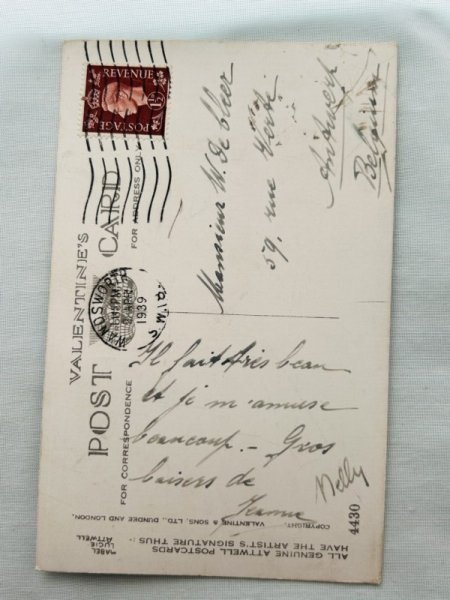 VALENTINE'S
POST CARD
FOR CORRESPONDENCE
FOR ADDRESS ONLY
REVENUE
POSTAGE
1½D
WANDSWORTH
APR
1939
S.W.18
Monsieur W. de
59, rue
Belgium
Il fait très beau
et je m'amuse
beaucoup. - Gros
baisers de
Jeanne
Nelly
4430
COPYRIGHT. VALENTINE & SONS, LTD., DUNDEE AND LONDON.
ALL GENUINE ATTWELL POSTCARDS
HAVE THE ARTIST'S SIGNATURE THUS :-
MABEL
LUCIE
ATTWELL